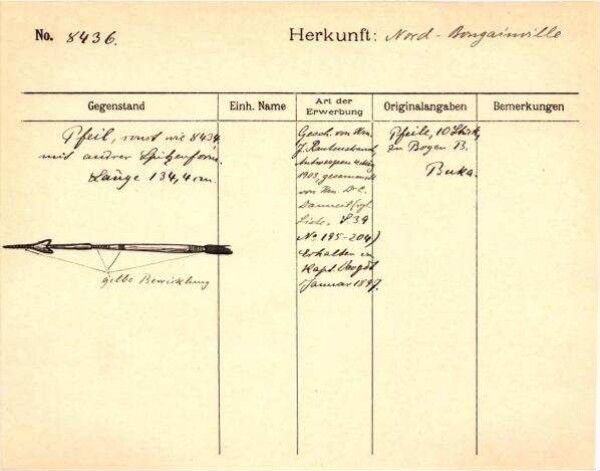 No. 8436.
Herkunft: Nord-Bougainville
Gegenstand
Einh. Name
Art der Erwerbung
Originalangaben
Bemerkungen
Pfeil, sonst wie 8434,
mit andrer Spitzenform.
Länge 134,4 cm.
gelbe Bewicklung
Gesch. von Hrn.
J. Rautenstrauch,
Antwerpen
1903, gesammelt
von Hrn.
Liste, S. 39
No 195-204)
Erhalten
Kapt.
Januar 1897.
Pfeile, 10 Stück,
zu Bogen B.
Buka.